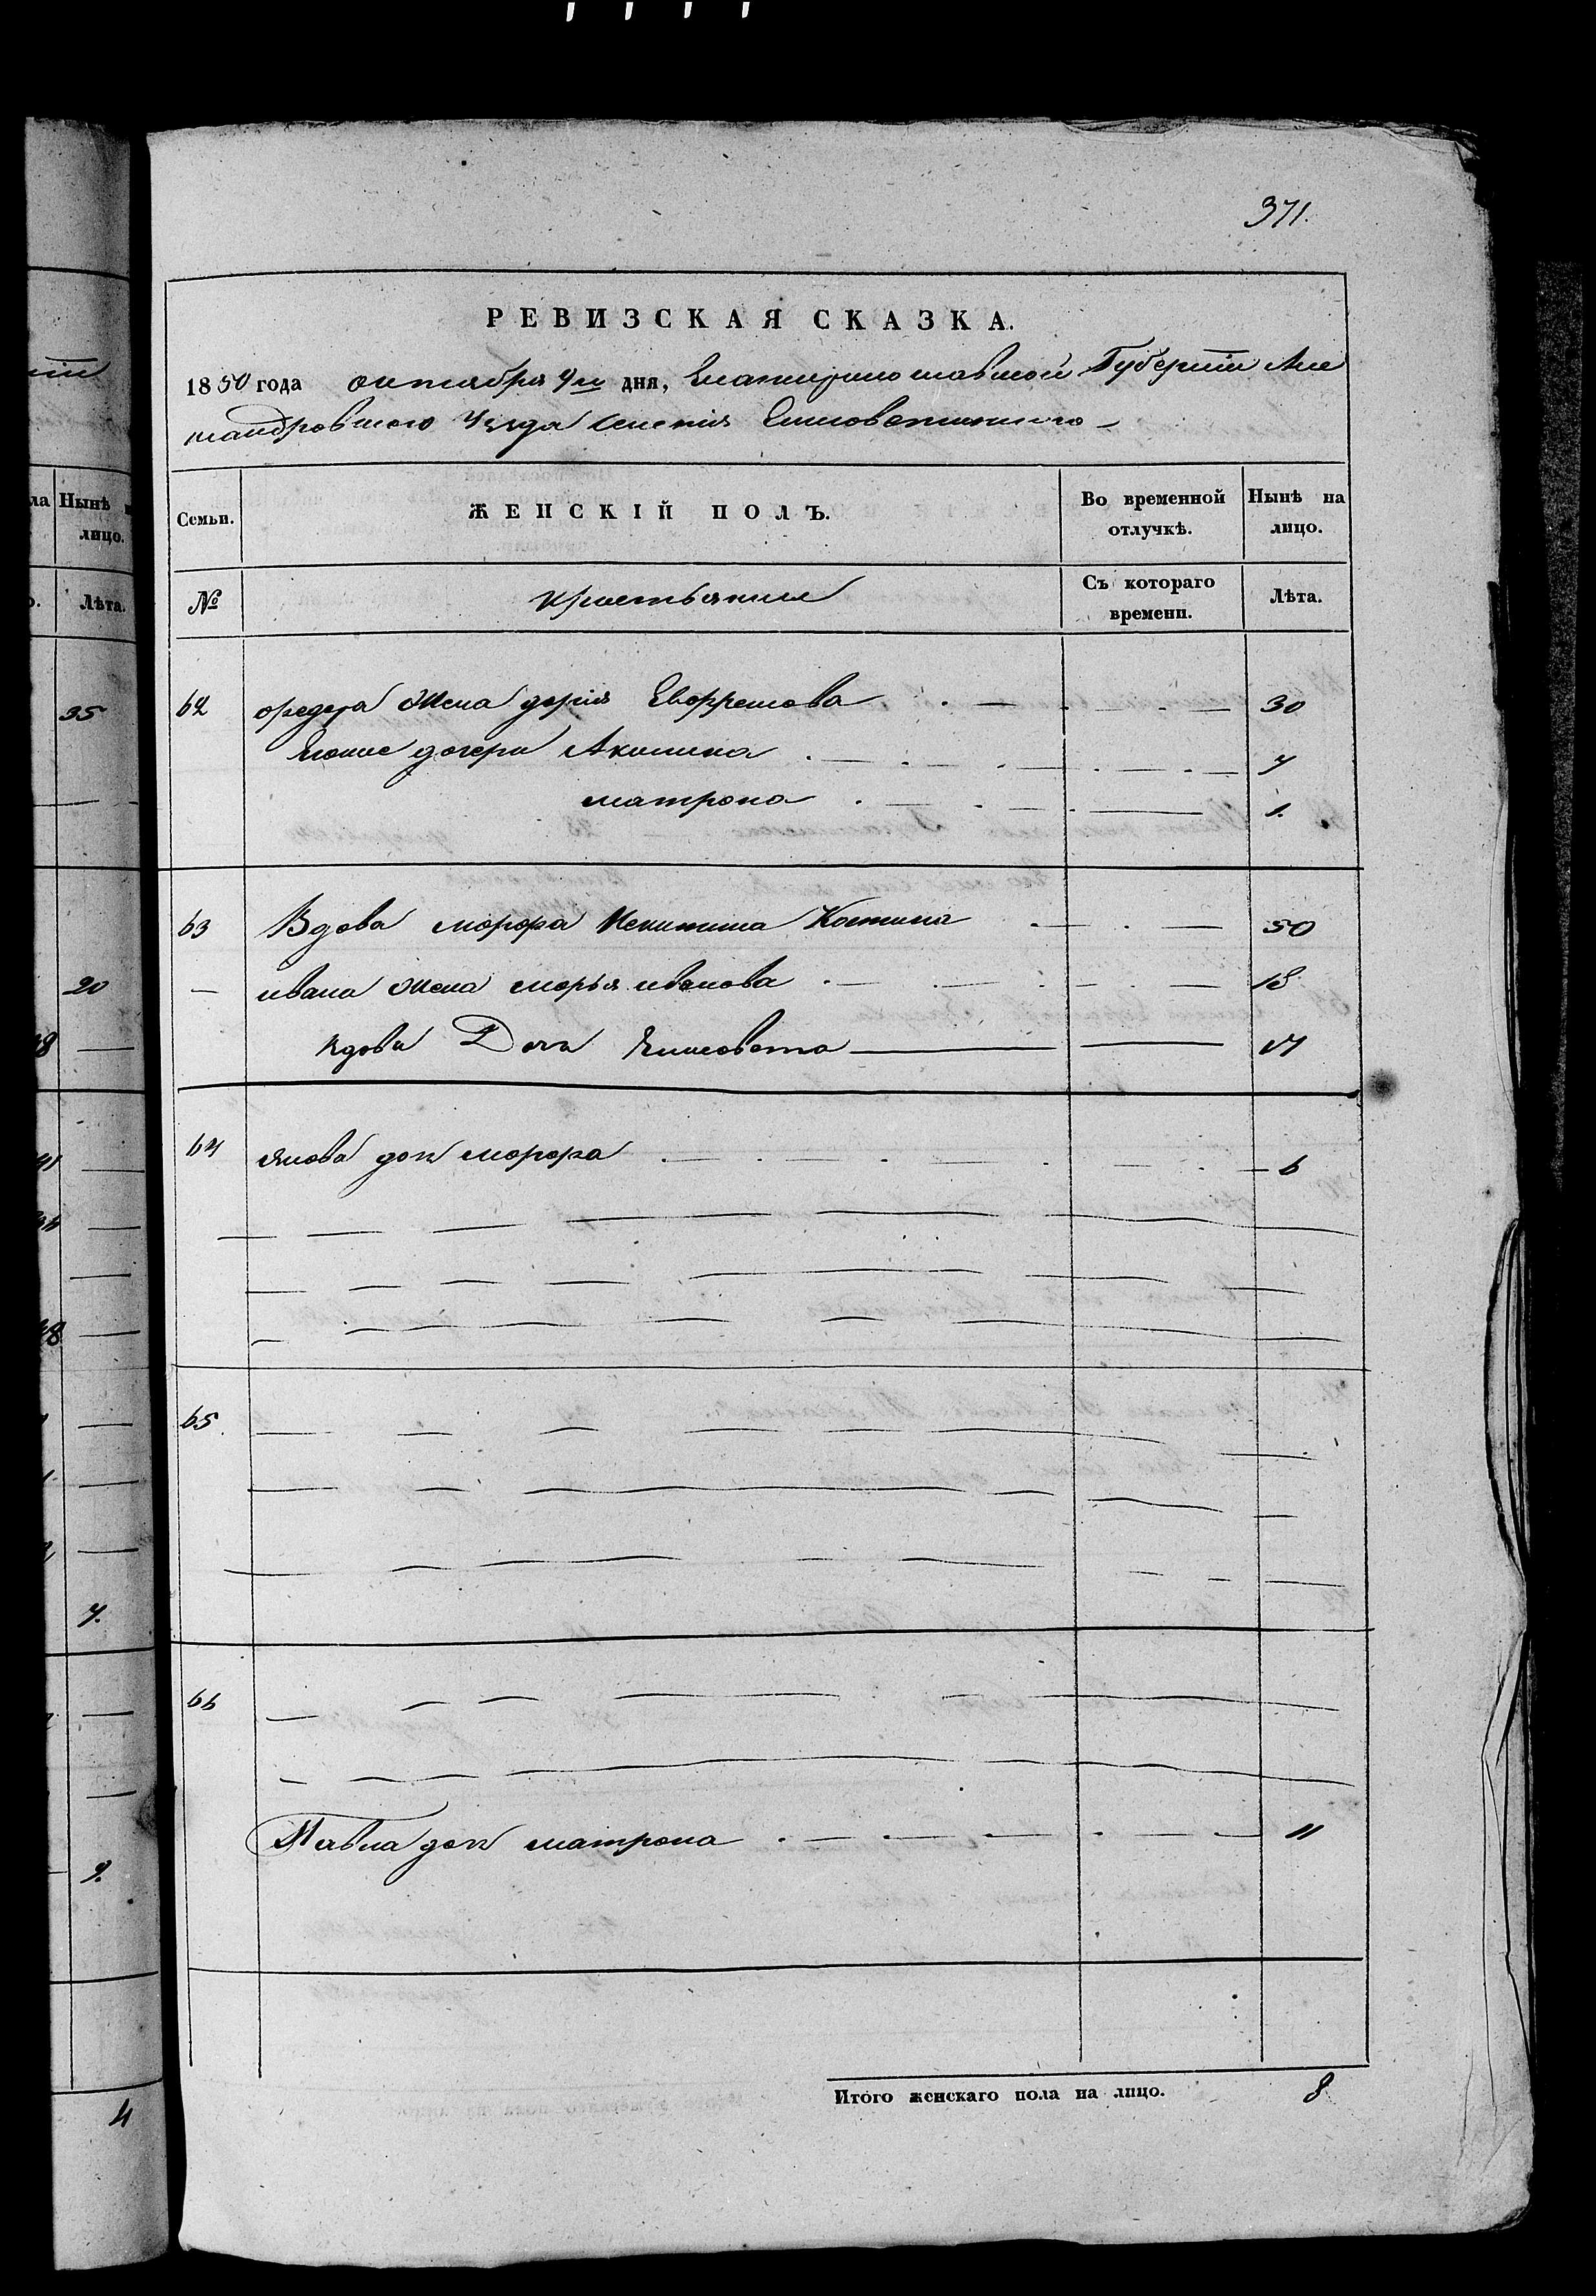 371.
РЕВИЗСКАЯ СКАЗКА.
1850 года октября 4го дня, Екатеринославской Губерніи Алек
сандровского Уезда Селенія Елисоветинского
Семьи. ЖЕНСКІЙ ПОЛЪ. Во временной отлучкѣ. Нынѣ на лицо.
№ Крестьянки Съ котораго времени. Лѣта.
62 Федора Жена дарія 30
Еіоние дочери Акилина 7
матрона 1.
63 Вдова морфа Никитина Костина 50
— ивана Жена морья иванова 18
вдовы Дочь Елисовета 17
64 Якова дочь морфа 6
65.
66
Павла дочь матрона 11
Итого женскаго пола на лицо. 8
ла Нынѣ лицо.
Лѣта.
35
20
7.
9.
4